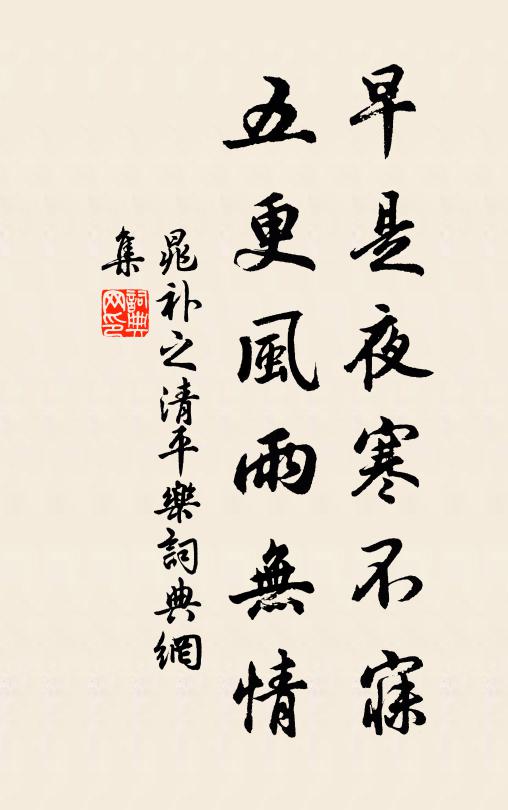 早是夜寒不寐
五更風雨無情
晁补之清平樂詞典網
集
詞典网印